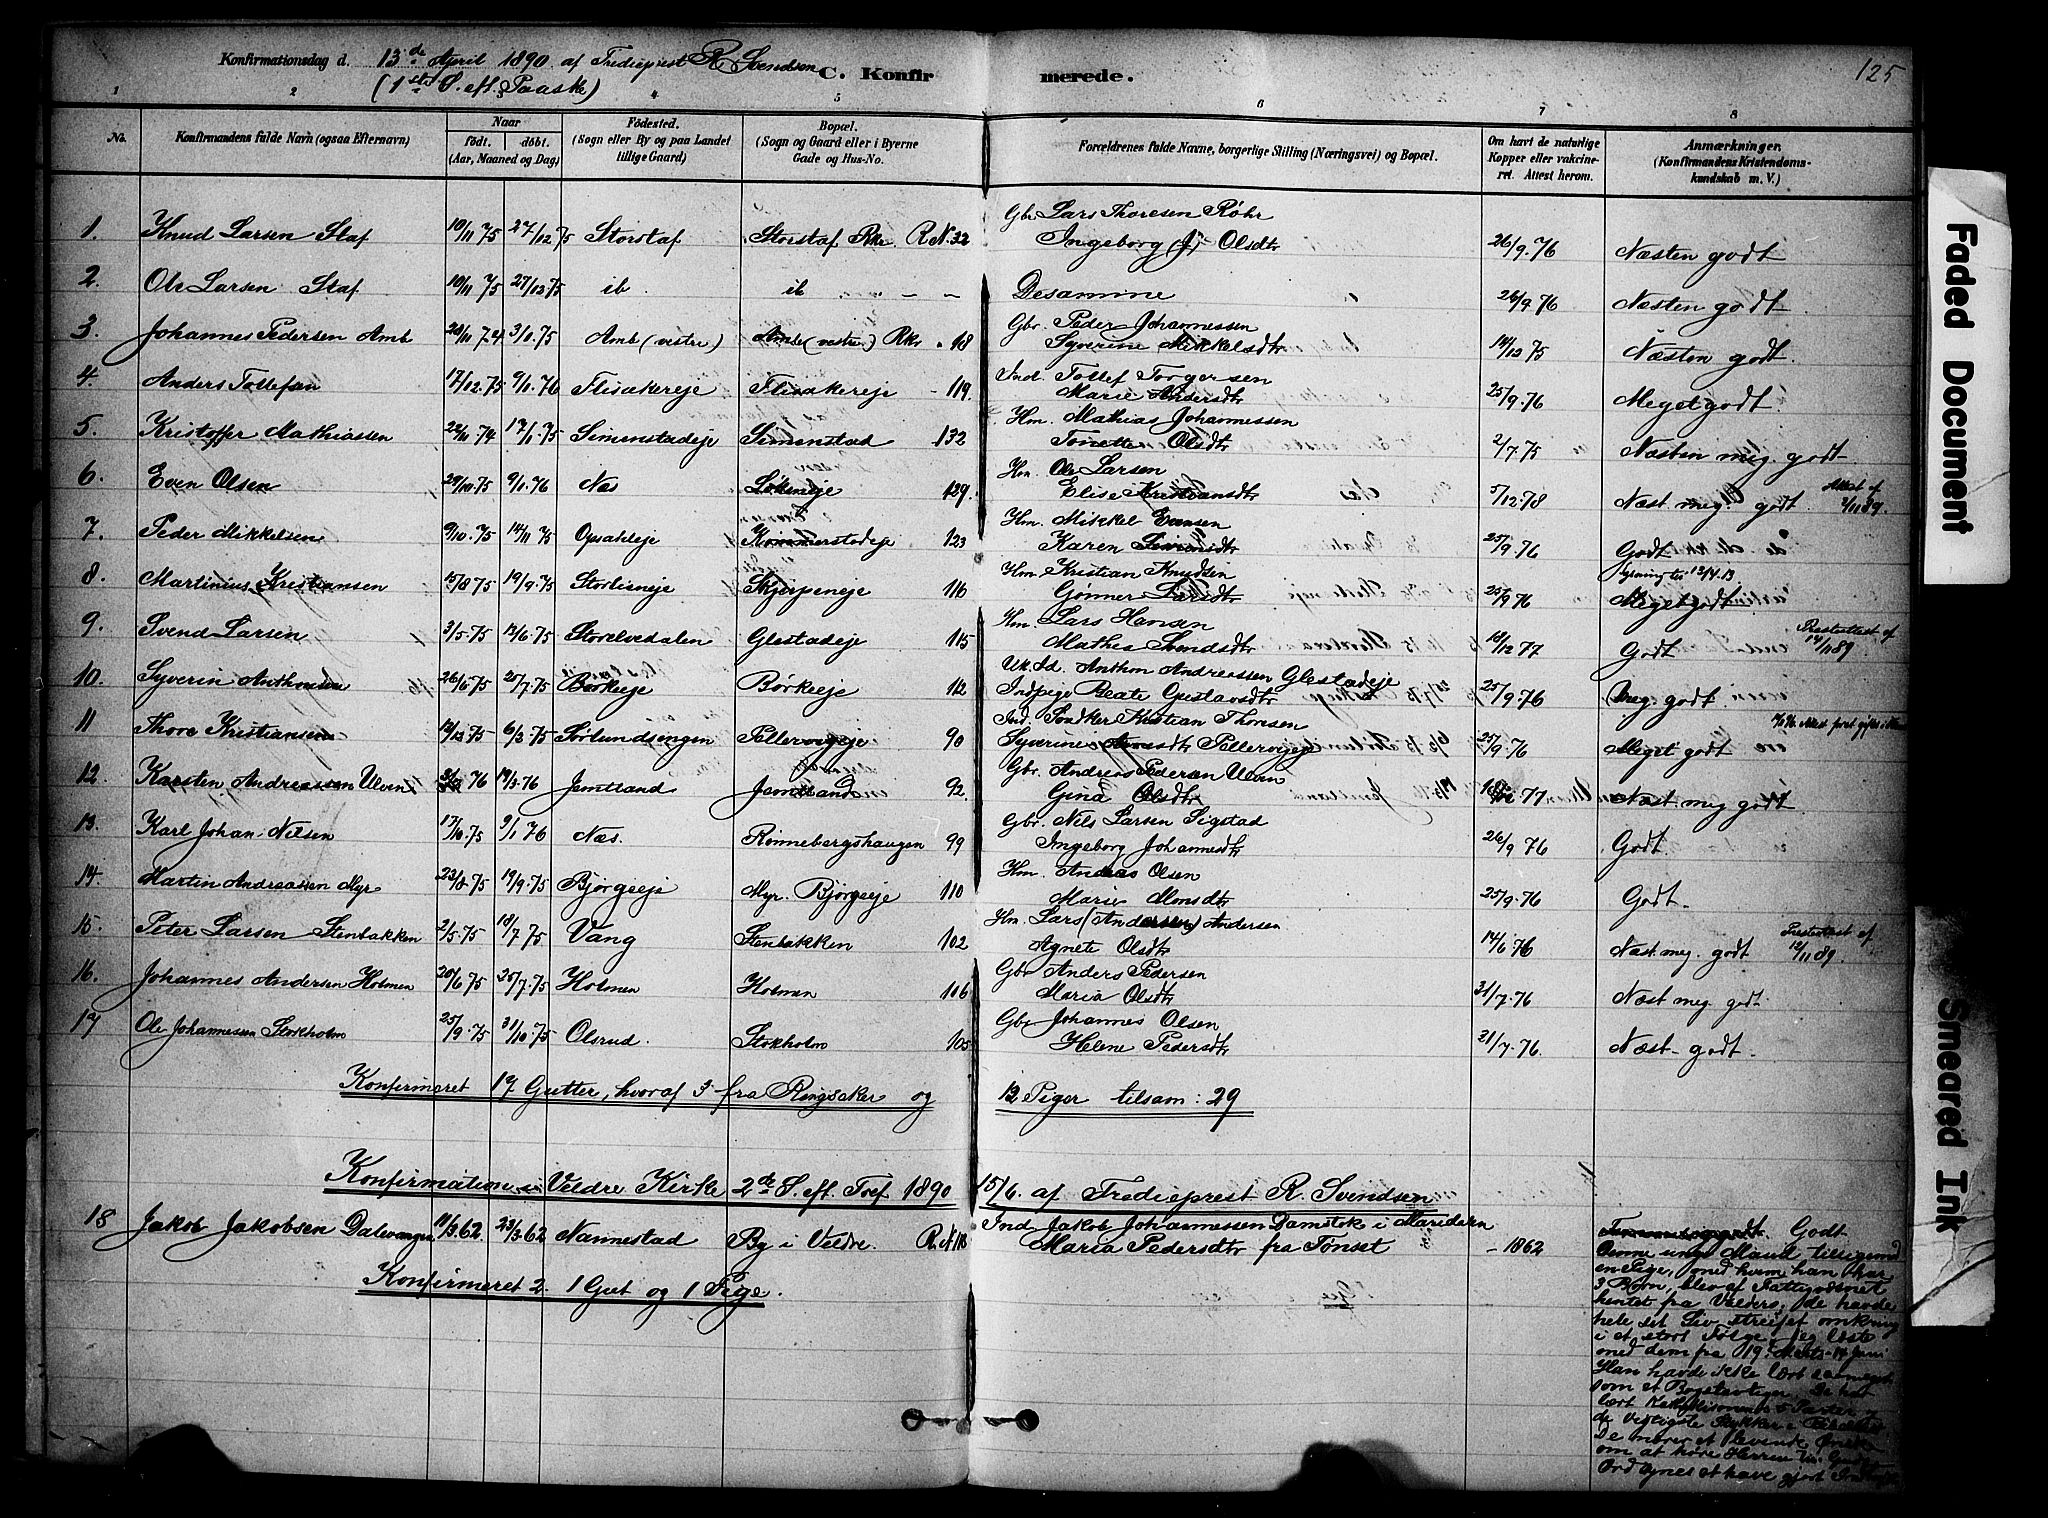 Konfirmationsdag d. 13de April 1890 af Frediceprest R. Svendsen
(1ste S. eft. Paaske)
C. Konfirmerede.
125
1 2 3 4 5 6 7 8
No. Konfirmandens fulde Navn (ogsaa Efternavn) Naar født. døbt. (Aar, Maaned og Dag) Fødested. (Sogn eller By og paa Landet tillige Gaard) Bopæl. (Sogn og Gaard eller i Byerne Gade og Hus-No. Forældrenes fulde Navne, borgerlige Stilling (Næringsvei) og Bopæl. Om havt de naturlige Kopper eller vakcineret. Attest herom. Anmærkninger. (Konfirmandens Kristendomskundskab m. V.)
1. Knud Larsen Staf 10/11 75 27/12 75 Storstaf Storstaf Rkr R.N. 32 Gbr Lars Thoresen Røhr
Ingeborg (J) Olsdtr 26/9.76 Næsten godt
2. Ole Larsen Staf 10/11 75 27/12 75 ib. ib - - Desamme 26/9.76 Næsten godt
3. Johannes Pedersen Amb 20/11 74 3/1.75 Amb (vestre) Amb (vestre) Rkr " 118 Gbr. Peder Johannessen
Syverine Mikkelsdtr 14/12 75 Næsten godt
4. Anders Tollefsen 17/12.75 9/1.76 Flisakereje Flisakereje - 119. Ind. Tollef Torgersen
Marie Andersdtr 25/9.76 Meget godt
5. Kristoffer Mathiassen 22/11 74 17/1.75 Simenstadeje Simenstad 132 Hm. Mathias Johannessen
Tonette Olsdtr 2/7.75 Næsten meg. godt
6. Even Olsen 29/10.75 9/1.76 Næs Løkeneje 129. Hm. Ole Larsen
Elise Kristiansdtr 5/12.78 Næst. meg. godt. Attest af 2/11 89.
7. Peder Mikkelsen 9/10.75 14/11 75 Opsateje Kommerstadeje 123 Hm. Mikkel Evensen
Karen Simensdtr 25/9.76 Godt
8. Martinius Kristiansen 15/8 75 19/9.75 Storlieneje Skjerpeneje 116 Hm. Kristian Knudsen
Gonner Larsdtr 25/9 76 Meget godt
9. Svend Larsen 3/5.75 12/6.75 Storelvedalen Glestadeje 115 Hm. Lars Hansen
Mathea Svendsdtr 18/12 77 Godt Presteattest af 14/11 89
10. Syverin Anthonsen 26/6.75 25/7.75 Børkeeje Børkeeje 112 Anthon Andreassen Glestadeje
Indpige Beate Gustavsdtr 25/9.76 Meg. godt
11 Thore Kristiansen 75 6/3.75 Sørlundsengen Pellervigeje 90 Ind. Kristian Thoresen
Syverine Pellervigeje 25/9.76 Meget godt
12. Karsten Andreassen Ulven 76 19/3.76 Jemtland Jemtland 92. Gbr. Andreas Pedersen Ulven
Gina Olsdtr 77 Næst meg godt
13. Karl Johan Nilsen 17/10.75 9/1 76 Næs. Rønnebergshaugen 99 Gbr. Nils Larsen Sigstad
Ingeborg Johannesdtr 26/9 76 Godt.
14. Martin Andreassen Myr 23/8.75 19/9.75 Bjørgeeje Myr. Bjørgeeje 110 Hm. Andreas Olsen
Marie Monsdtr 25/9.76 Godt.
15. Peter Larsen Stenbakken 2/5.75 18/7 75 Vang Stenbakken 102 Hm. Lars (Andersen) Andersen
Agnete Olsdtr 14/6.76 Næst. meg. godt Presteattest af 12/11 89.
16. Johannes Andersen Holmen 20/6 75 25/7.75 Holmen Holmen 106 Gbr Anders Pedersen
Maria Olsdtr 31/7.76 Næst meg. godt.
17 Ole Johannessen Stokholm 25/9.75 31/10.75 Olsrud. Stokholm 105 Gbr Johannes Olsen
Helene Pedersdtr 31/7.76. Næst. godt.
Konfirmeret 17 Gutter, hvoraf 3 fra Ringsaker og 12 Piger tilsam: 29
Konfirmation i Veldre Kirke 2de S. eft. Tref 1890 15/6. af Frediceprest R. Svendsen
18 Jakob Jakobsen Dalevangen 11/3.62 23/3.62 Nannestad By i Veldre. R.N. 118 Ind Jakob Johannessen Damstok i Maridalen
Maria Pedersdtr fra Tønset - 1862 Godt
Denne unge Mand tilligemed
en Pige, med hvem han har
3 Børn, blev af Fattigvæsenet
hentet fra Valders; de havde
hele sit Liv streifet omkring
i et stort Følge. Jeg læste
med dem fra 19. Marts-14 Juni
Han havde ikke lært saameget
som et Bogstavtegn. De har
lært Katekismens 5 Parter og
de vigtigste Stykker i
De
om at høre Herren
Ord synes at have gjort
Konfirmeret 2. 1 Gut og 1 Pige.
Faded Document
Smeared Ink